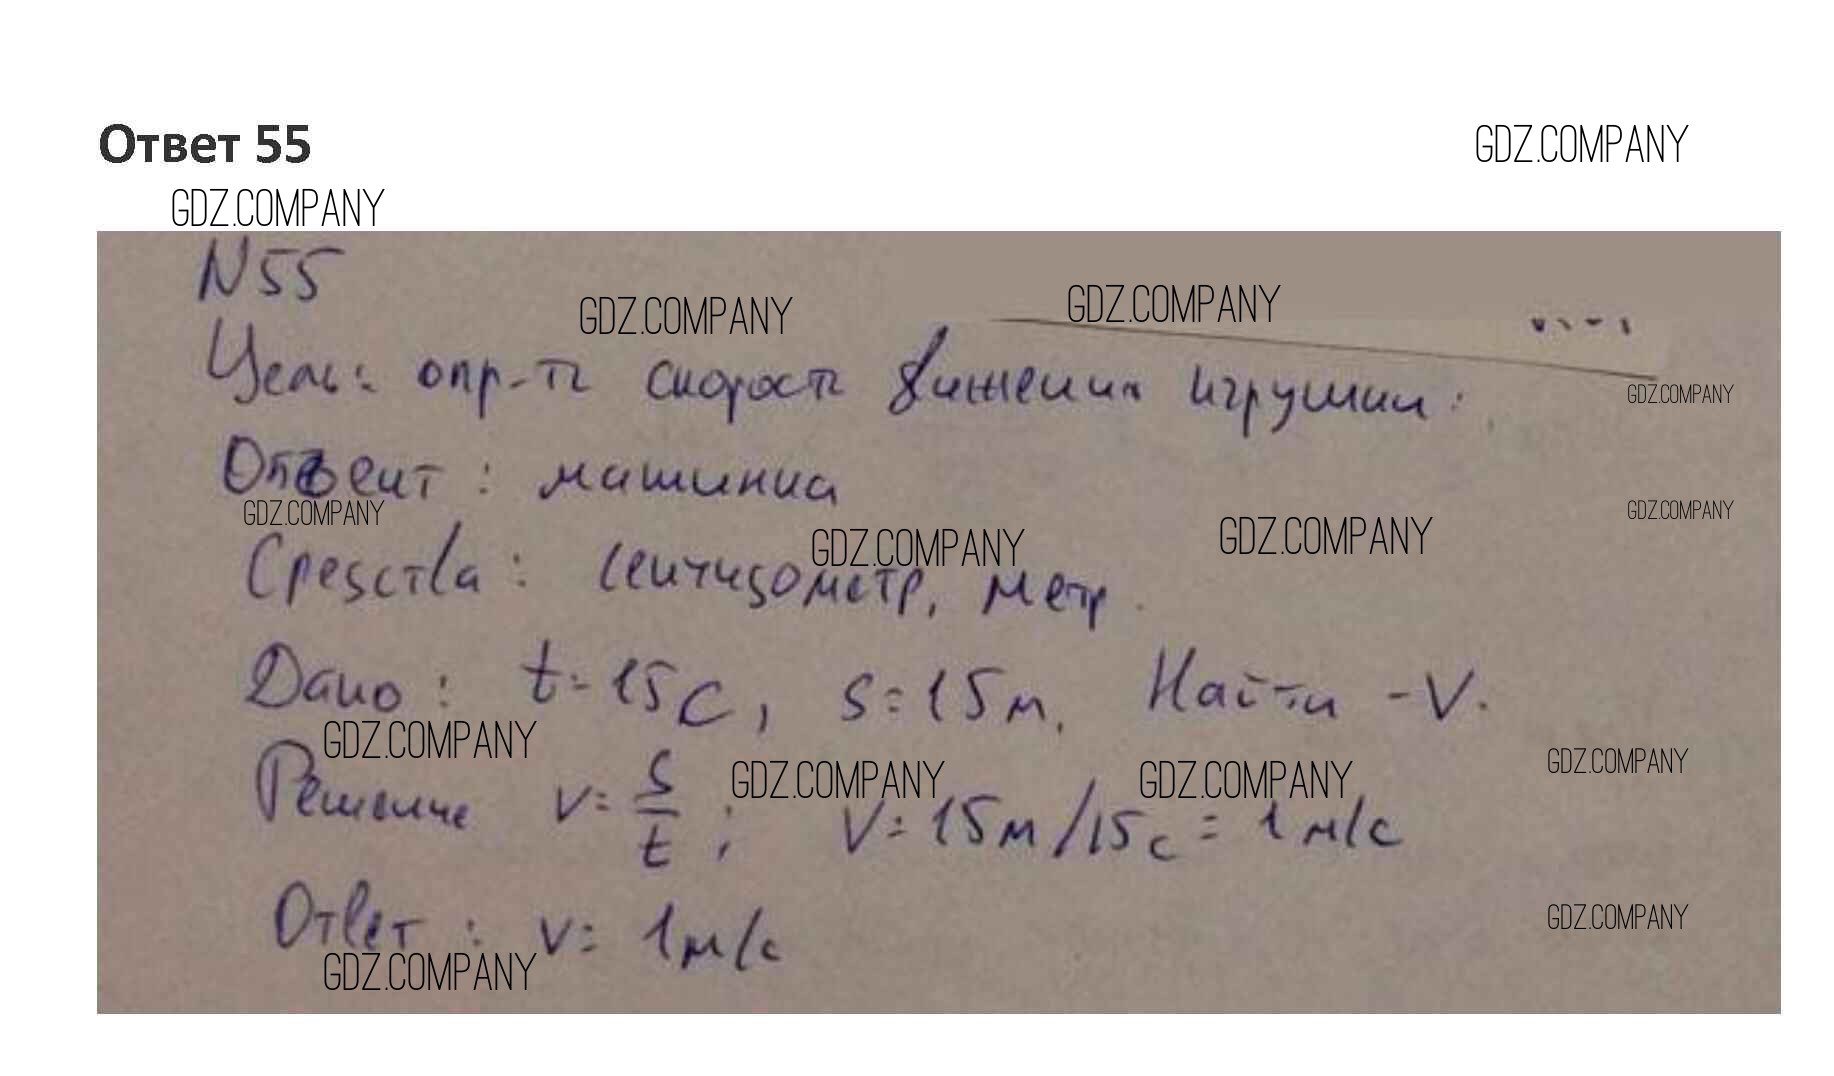 Ответ 55
GDZ.COMPANY
GDZ.COMPANY
N55
GDZ.COMPANY
GDZ.COMPANY
Цель: опр-ть скорость движения игрушки:
GDZ.COMPANY
: машинка
GDZ.COMPANY
GDZ.COMPANY
GDZ.COMPANY
GDZ.COMPANY
Средства: , метр.
Дано: t=15с, s=15м. Найти -V.
GDZ.COMPANY
GDZ.COMPANY
GDZ.COMPANY
GDZ.COMPANY
Решение v=s/t; V=15м/15с=1м/с
Ответ: v=1м/с
GDZ.COMPANY
GDZ.COMPANY